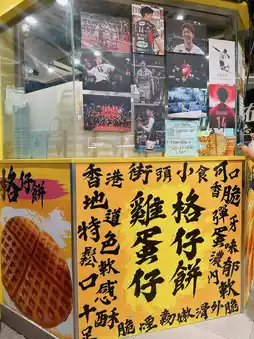 香港街頭小食
地道特色
鬆軟口感
十足酥脆
煙韌嫩滑
外脆內軟
蛋味濃郁
彈牙
香脆
可口
格仔餅
雞蛋仔
格仔餅